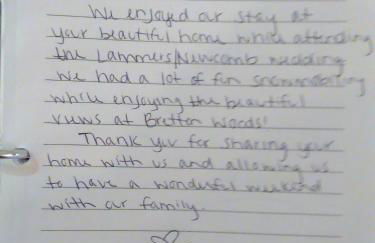 We enjoyed our stay at
your beautiful home while attending
the Lammers/Newcomb wedding
We had a lot of fun snowmobiling
while enjoying the beautiful
views at Bretton Woods!
Thank you for sharing your
home with us and allowing us
to have a wonderful weekend
with our family.